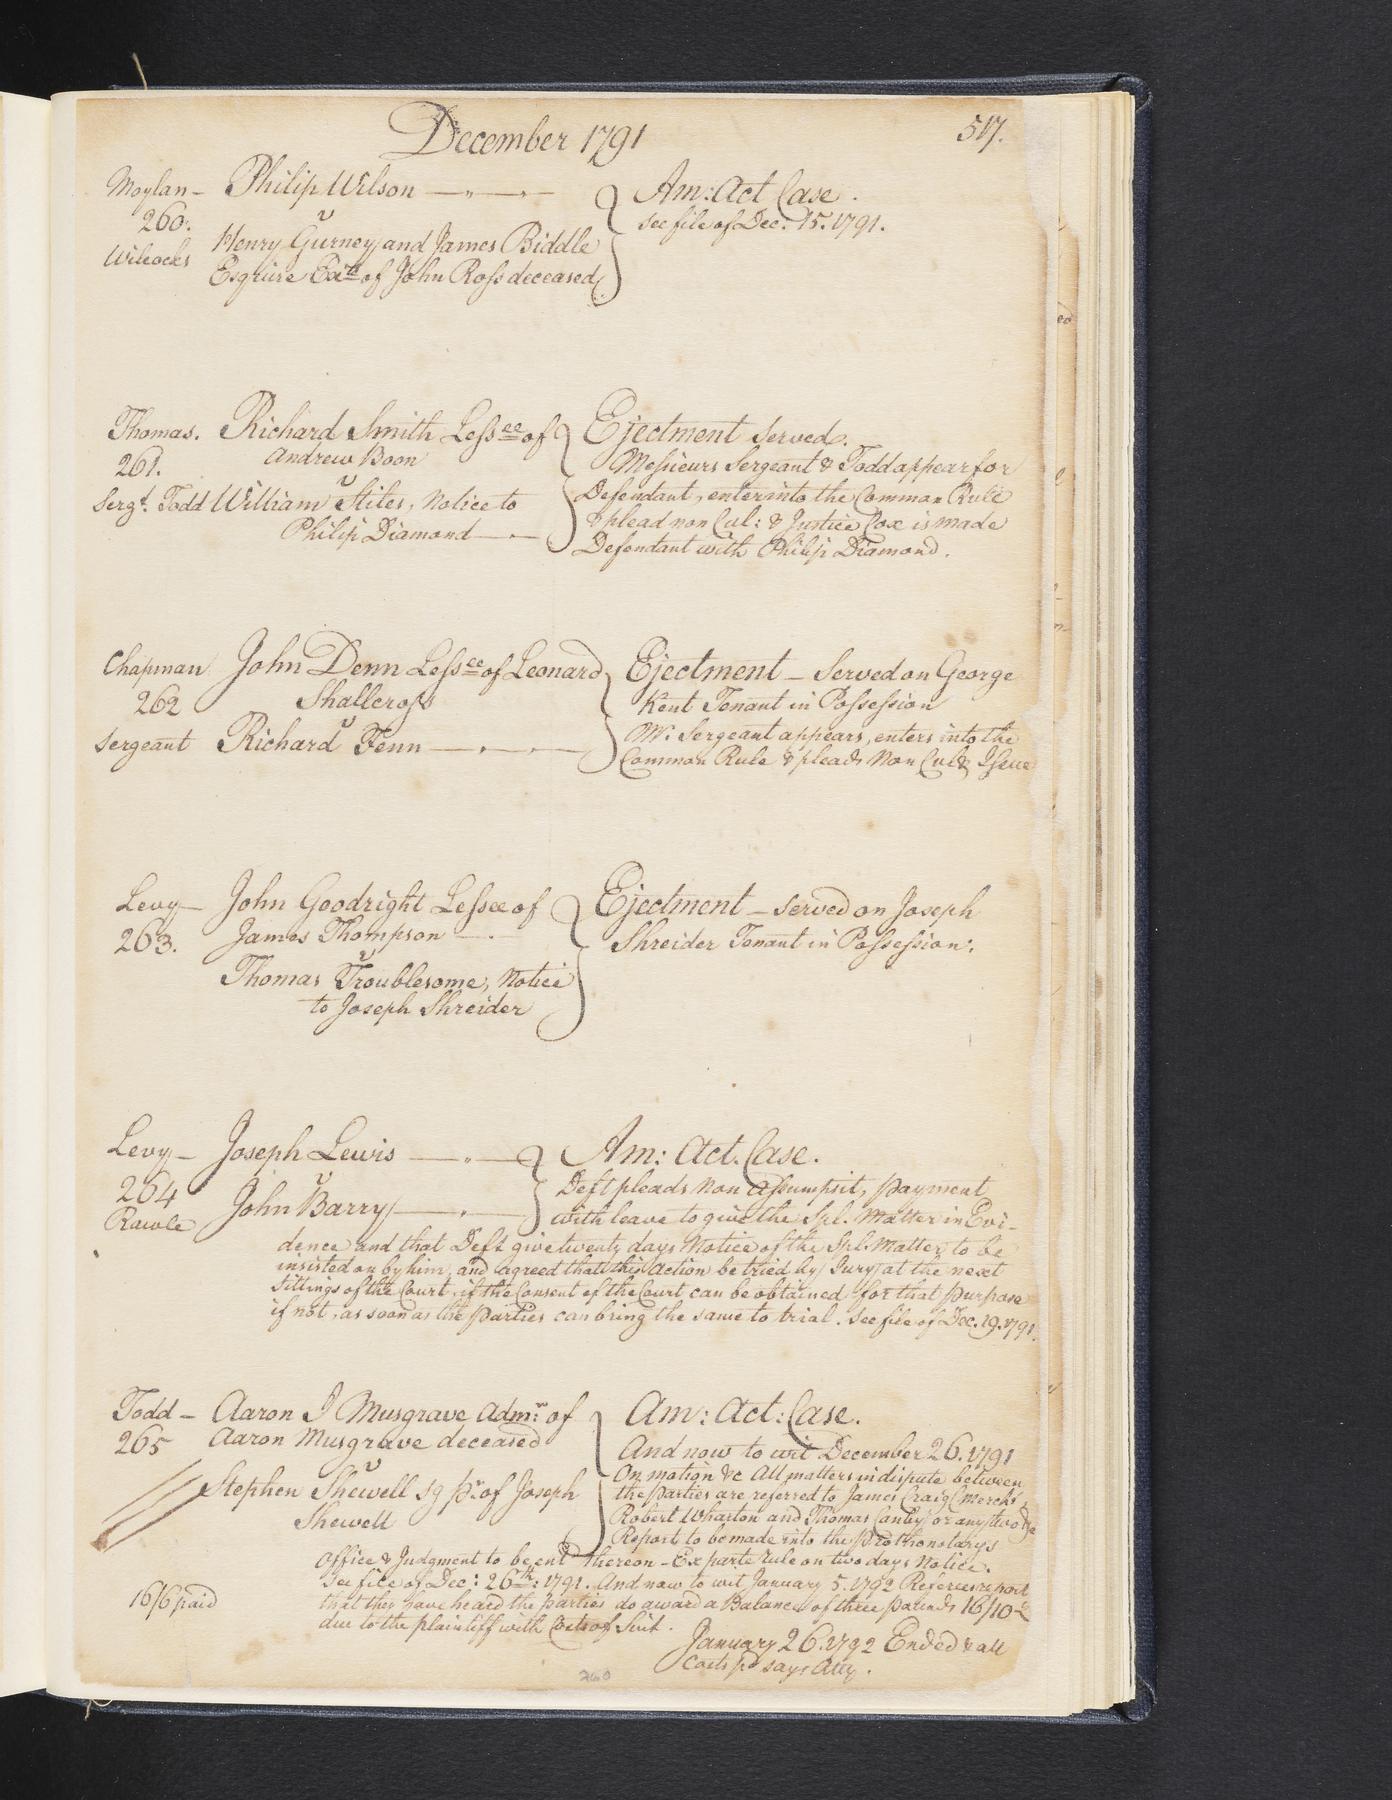 December 1791
517.
Moylan – Philip Wilson
260.
v
Wilcocks
Henry Gurney and James Biddle
Esquire Exrs of John Ross deceased
Am: Act Case.
see file of Dec. 15. 1791.
Thomas. Richard Smith Lessee of
261. Andrew Boon
v
Sergt. Todd William Stiles, Notice to
Philip Diamond
Ejectment Served.
Messieurs Sergeant & Todd appear for
Defendant, enter into the Common Rule
& plead non Cul: & Justice Cox is made
Defendant with Philip Diamond.
Chapman John Denn Lessee of Leonard
262 Shallcross
v
Sergeant Richard Fenn
Ejectment – Served on George
Kent Tenant in Possession
Mr. Sergeant appears, enters into the
Common Rule & pleads Non Cul & Issue
Levy – John Goodright Lessee of
263. James Thompson
v
Thomas Troublesome, Notice
to Joseph Shreider
Ejectment – served on Joseph
Shreider Tenant in Possession.
Levy – Joseph Lewis
264 v
Rawle John Barry
Am: Act. Case.
Deft pleads Non Assumpsit, payment
with leave to give the Spl. Matter in Evi-
dence and that Deft give twenty days Notice of the Spl. Matter to be
insisted on by him, and agreed that this Action be tried by Jury at the next
Sittings of the Court, if the Consent of the Court can be obtained for that purpose
if not, as soon as the parties can bring the same to trial. See file of Dec. 19. 1791.
Todd – Aaron J Musgrave Admr. of
265 Aaron Musgrave deceased
v
Stephen Shewell sg pr. of Joseph
Shewell
Am: Act: Case.
And now to wit December 26. 1791
On motion &c All matters in dispute between
the parties are referred to James Craig Mercht
Robert Wharton and Thomas Canby or any two &c
Report to be made into the Prothonotarys
office & Judgment to be ent thereon – Exparte rule on two days Notice.
See file of Dec: 26th: 1791. And now to wit January 5. 1792 Referees report
that they have heard the parties do award a Balance of three pounds 16/10
due to the plaintiff with Costs of Suit.
16/6 paid
January 26. 1792 Ended & all
Costs pd says Atty.
260